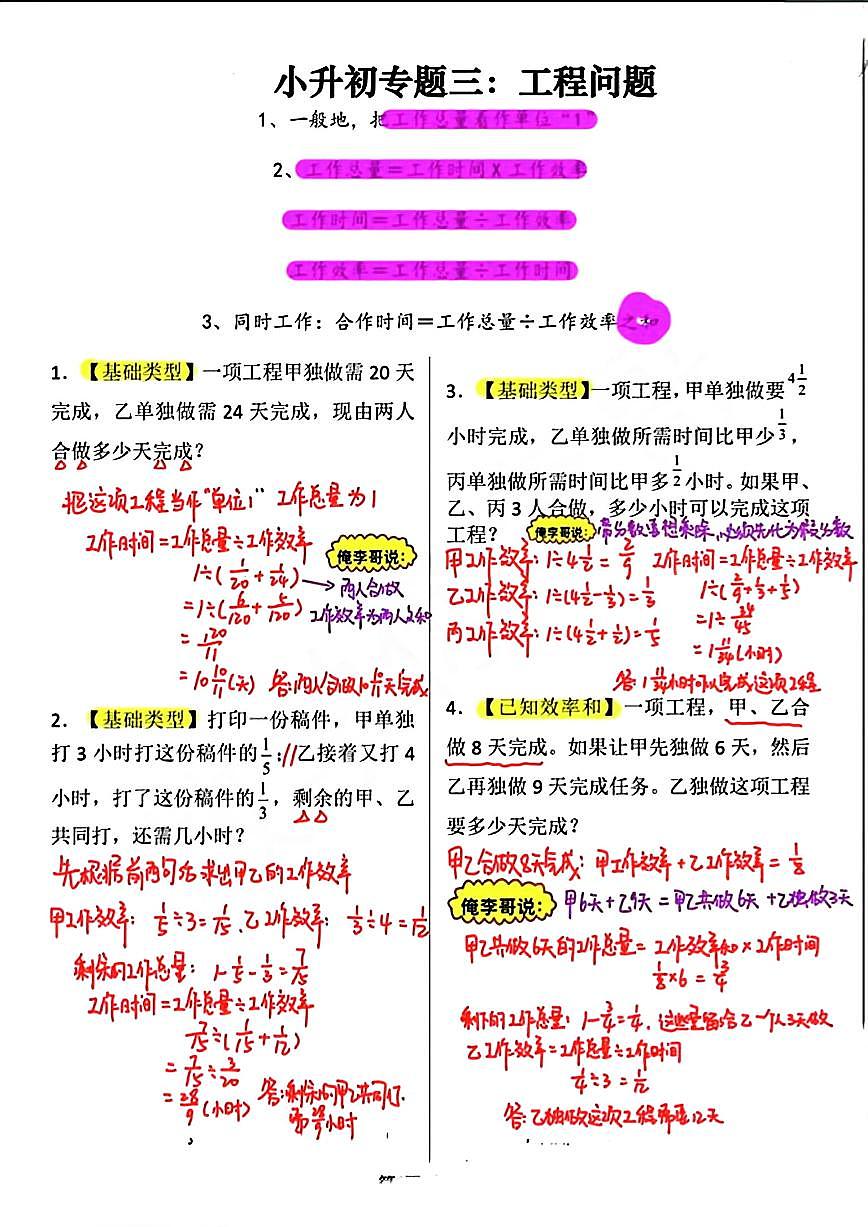 小升初专题三：工程问题
1、一般地，把工作总量看作单位“1”
2、工作总量＝工作时间×工作效率
工作时间＝工作总量÷工作效率
工作效率＝工作总量÷工作时间
3、同时工作：合作时间＝工作总量÷工作效率之和
1. 【基础类型】一项工程甲独做需 20 天
完成，乙单独做需 24 天完成，现由两人
合做多少天完成？
把这项工程当作“单位1” 工作总量为1
工作时间=工作总量÷工作效率
俺李哥说：
1÷(1/20+1/24) → 两人合做
=1÷(6/120+5/120) 工作效率为两人之和
=120/11
=10 10/11(天) 答:两人合做10 10/11天完成
2. 【基础类型】打印一份稿件，甲单独
打 3 小时打这份稿件的1/5；//乙接着又打 4
小时，打了这份稿件的1/3，剩余的甲、乙
共同打，还需几小时？
先根据前两句话求出甲乙的工作效率
甲工作效率: 1/5÷3=1/15. 乙工作效率: 1/3÷4=1/12
剩余的工作总量: 1-1/5-1/3=7/15
工作时间=工作总量÷工作效率
7/15÷(1/15+1/12)
=7/15÷3/20
=28/9(小时) 答:剩余的甲乙共同打.
需28/9小时
3. 【基础类型】一项工程，甲单独做要4 1/2
小时完成，乙单独做所需时间比甲少1/3，
丙单独做所需时间比甲多1/2小时。如果甲、
乙、丙 3 人合做，多少小时可以完成这项
工程？ 俺李哥说: 带分数遇想乘除,必须先化为假分数
甲工作效率: 1÷4 1/2=2/9 工作时间=工作总量÷工作效率
乙工作效率: 1÷(4 1/2-1/3)=1/3 1÷(2/9+1/3+1/5)
丙工作效率: 1÷(4 1/2+1/2)=1/5 =1÷34/45
=1 11/34(小时)
答:1 11/34小时可以完成这项工程
4. 【已知效率和】一项工程，甲、乙合
做 8 天完成。如果让甲先独做 6 天，然后
乙再独做 9 天完成任务。乙独做这项工程
要多少天完成？
甲乙合做8天完成: 甲工作效率+乙工作效率=1/8
俺李哥说： 甲6天+乙9天=甲乙共做6天+乙独做3天
甲乙共做6天的工作总量=工作效率和×工作时间
1/8×6=3/4
剩下的工作总量: 1-3/4=1/4. 这些是留给乙一个人3天做
乙工作效率=工作总量÷工作时间
1/4÷3=1/12
答:乙独做这项工程需要12天